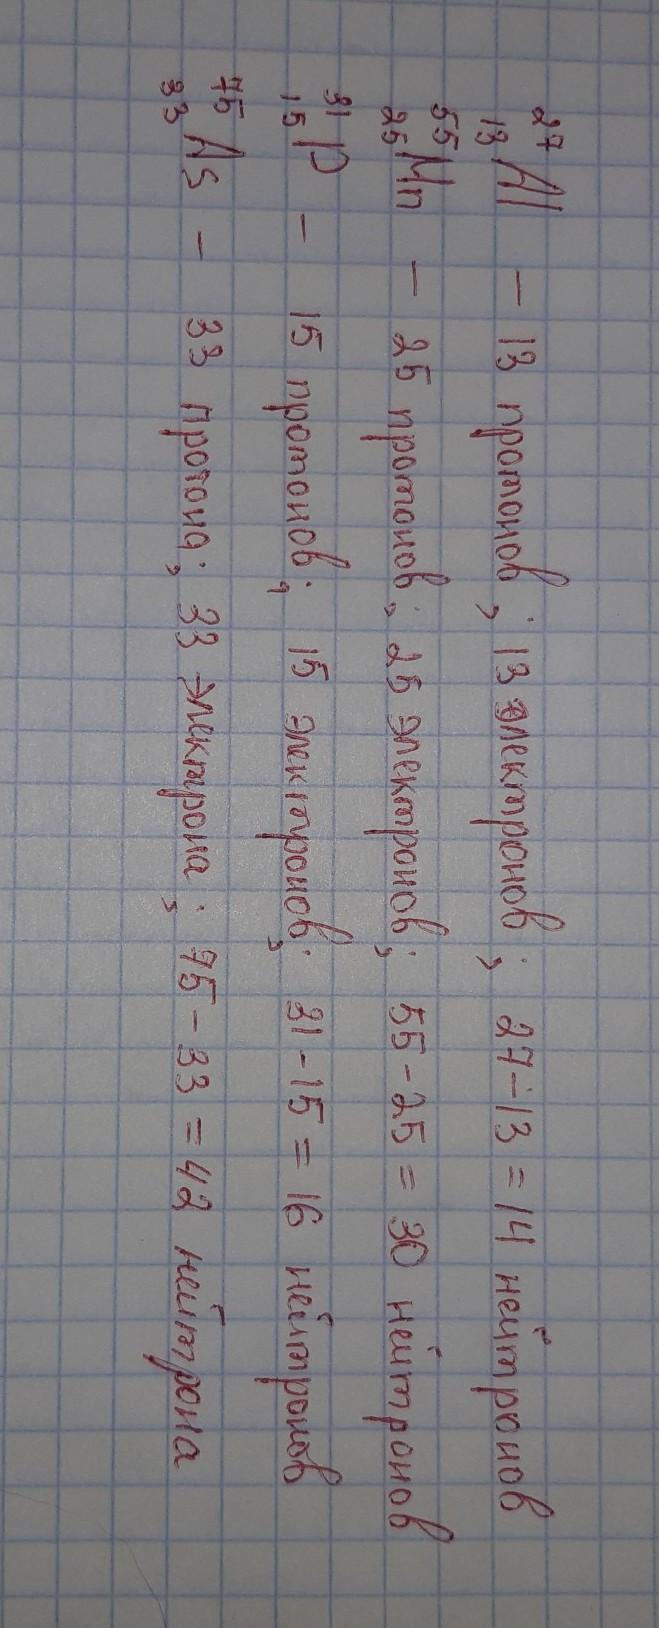 ²⁷₁₃Al – 13 протонов; 13 электронов; 27-13=14 нейтронов
⁵⁵₂₅Mn – 25 протонов; 25 электронов; 55-25=30 нейтронов
³¹₁₅P – 15 протонов; 15 электронов; 31-15=16 нейтронов
⁷⁵₃₃As – 33 протона; 33 электрона; 75-33=42 нейтрона